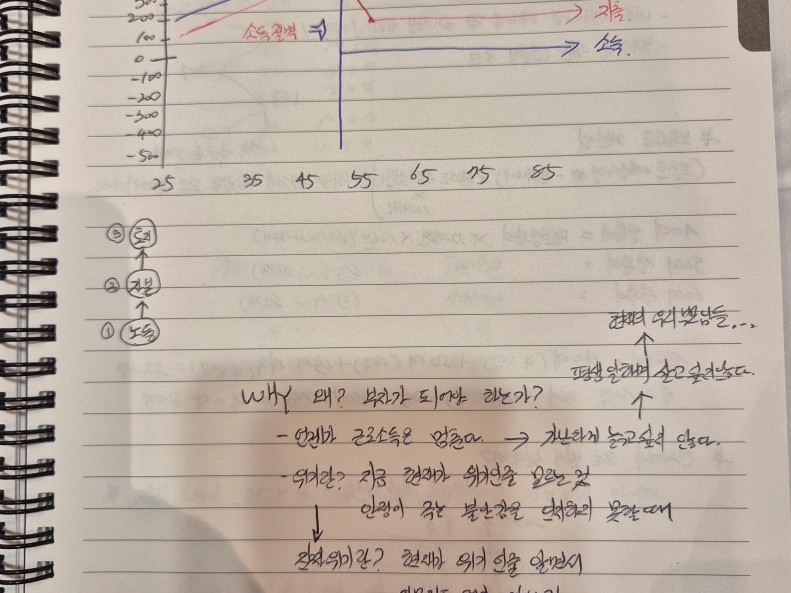 200
100
0
-100
-200
-300
-400
-500
지출
소득절벽 ⇒
소득
25 35 45 55 65 75 85
③
② 자본
① 노동
현재의 우리 부모님들...
평생 일하며 살고 싶지 않다.
WHY 왜? 부자가 되어야 하는가?
- 언젠가 근로소득은 멈춘다. → 가난하게 늙고 싶지 않다.
- 위기란? 지금 현재가 위기인줄 모르는 것
안정이 주는 불안감을 인지하지 못할 때
진짜 위기란? 현재가 위기 인줄 알면서